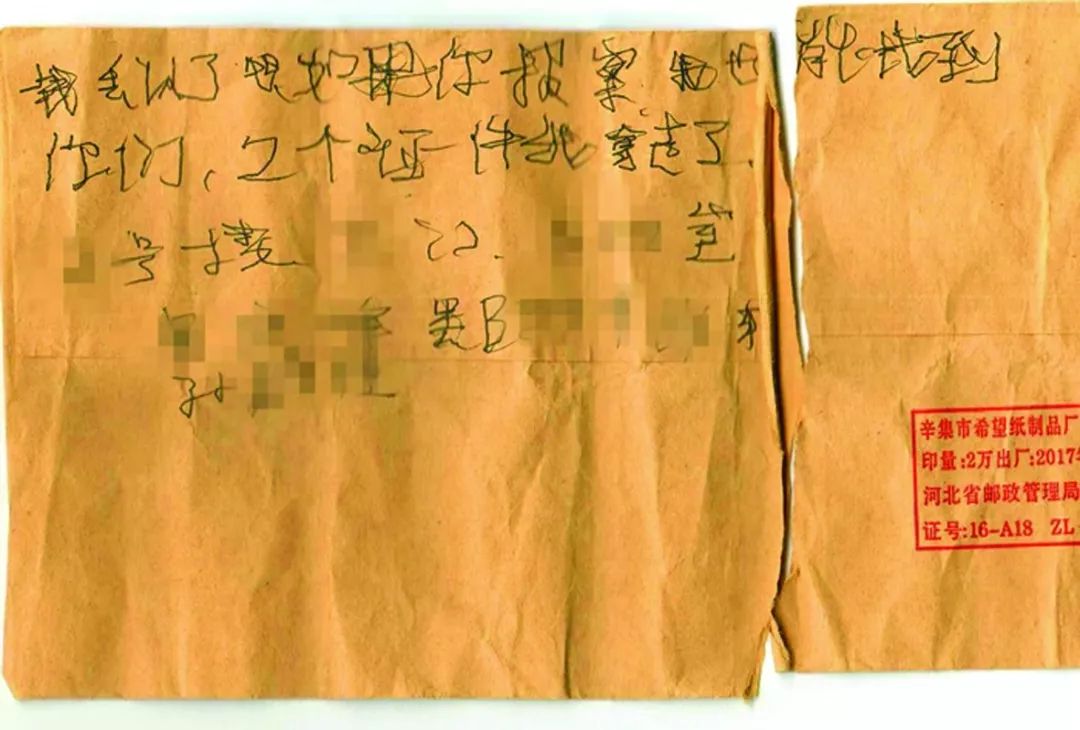 钱丢认了 但如果你报案 我也能找到
你们、2个证件我拿走了、
号楼 门、 室
冀B
孙
辛集市希望纸制品厂
印量:2万出厂:2017年
河北省邮政管理局
证号:16-A18 ZL